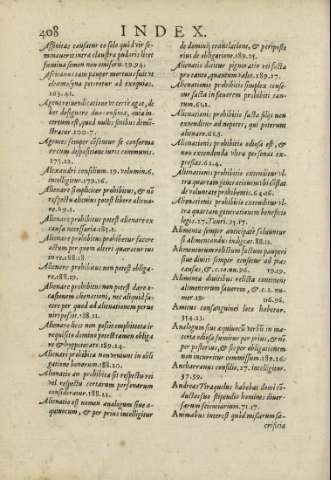 408 INDEX.
Affinitas causatur eo solo quòd vir se-
minauerit intra claustra pudoris licet
fœmina semen non emiserit. 19.94.
Africanus tam pauper mortuus fuit vt
elæmosyna peteretur ad exequias.
163.45.
Agens rei vendicatione vt certè agat, de-
bet designare duo confinia, quia in-
certum est, quod nullis finibus demõ-
stratur. 100.7.
Agentes semper censentur se conforma
re cum dispositione iuris communis.
175.12.
Alexandri consilium. 19. volumin. 6.
intelligitur. 170.16.
Alienare simpliciter prohibitus, & nõ
respectu alicuius potest libere aliena-
re. 19.2.
Alienare prohibitus potest alienare ex
causa necessaria. 185.1.
Alienare prohibitus prohibetur facere
actum per quem alteri quæratur ius
in re. 188.18
Alienare prohibitus non potest obliga-
re. 188.19.
Alienare prohibitus non potest dare o-
casionem alienationi, nec aliquid fa-
cere per quod ad alienationem perue
niri possit. 18.21.
Alienare licet non possit emphyteuta ir
requisito domino potest tamen obliga
re & hypotecare. 189.24.
Alienari prohibita non veniunt in obli
gatione bonorum. 188.20.
Alienatio an prohibita sit respectu rei
vel respectu certarum personarum
consideratur. 188.21.
Alienatio est nomen analogum siue æ-
quiuocum, & per prius intelligitur
de dominij translatione, & per poste
rius de obligatione. 189.25.
Alienatio dicitur pignoratio rei facta
pro tanto, quantum valet. 189.27.
Alienationis prohibitio simplex cense-
tur facta in fauorem prohibiti tan-
tum. 60.2.
Alienationis prohibitio facta filijs non
extenditur ad nepotes, qui poterunt
alienare. 61.3.
Alienationis prohibitio odiosa est, &
non extendenda vltra personas ex-
pressas. 61.4.
Alienationis prohibitio extenditur vl-
tra quartam generationem vbi constat
de voluntate prohibentis. 64.16.
Alienationis prohibitio extenditur vl-
tra quartam generationem beneficio
legis. 27. Tauri. 163.17.
Alimenta semper anticipatè soluuntur
si alimentandus indigeat. 88.12.
Alimentorum relictum factum pauperi
siue diuiti semper censetur ad piã
causam, & c. 10. nu. 96. 19.19.
Alimenta diuitibus relicta continent
alimentorum fauorem, & c. 2. nu-
mer. 19. 116.96.
Amicus consanguinei loco habetur.
354.23.
Analogum siue æquiuocũ verbũ in ma-
teria odiosa sumitur per prius, & nõ
per posterius, & sic per obligationem
non incurritur commissum. 189.26.
Ancharranus consilio. 27. intelligitur.
37.59.
Andreas Tiraquelus habebat domi cõ-
ductos suo stipendio homines diuer-
sarum scientiarum. 71.17.
Animabus interest quòd missarum sa-
crificia